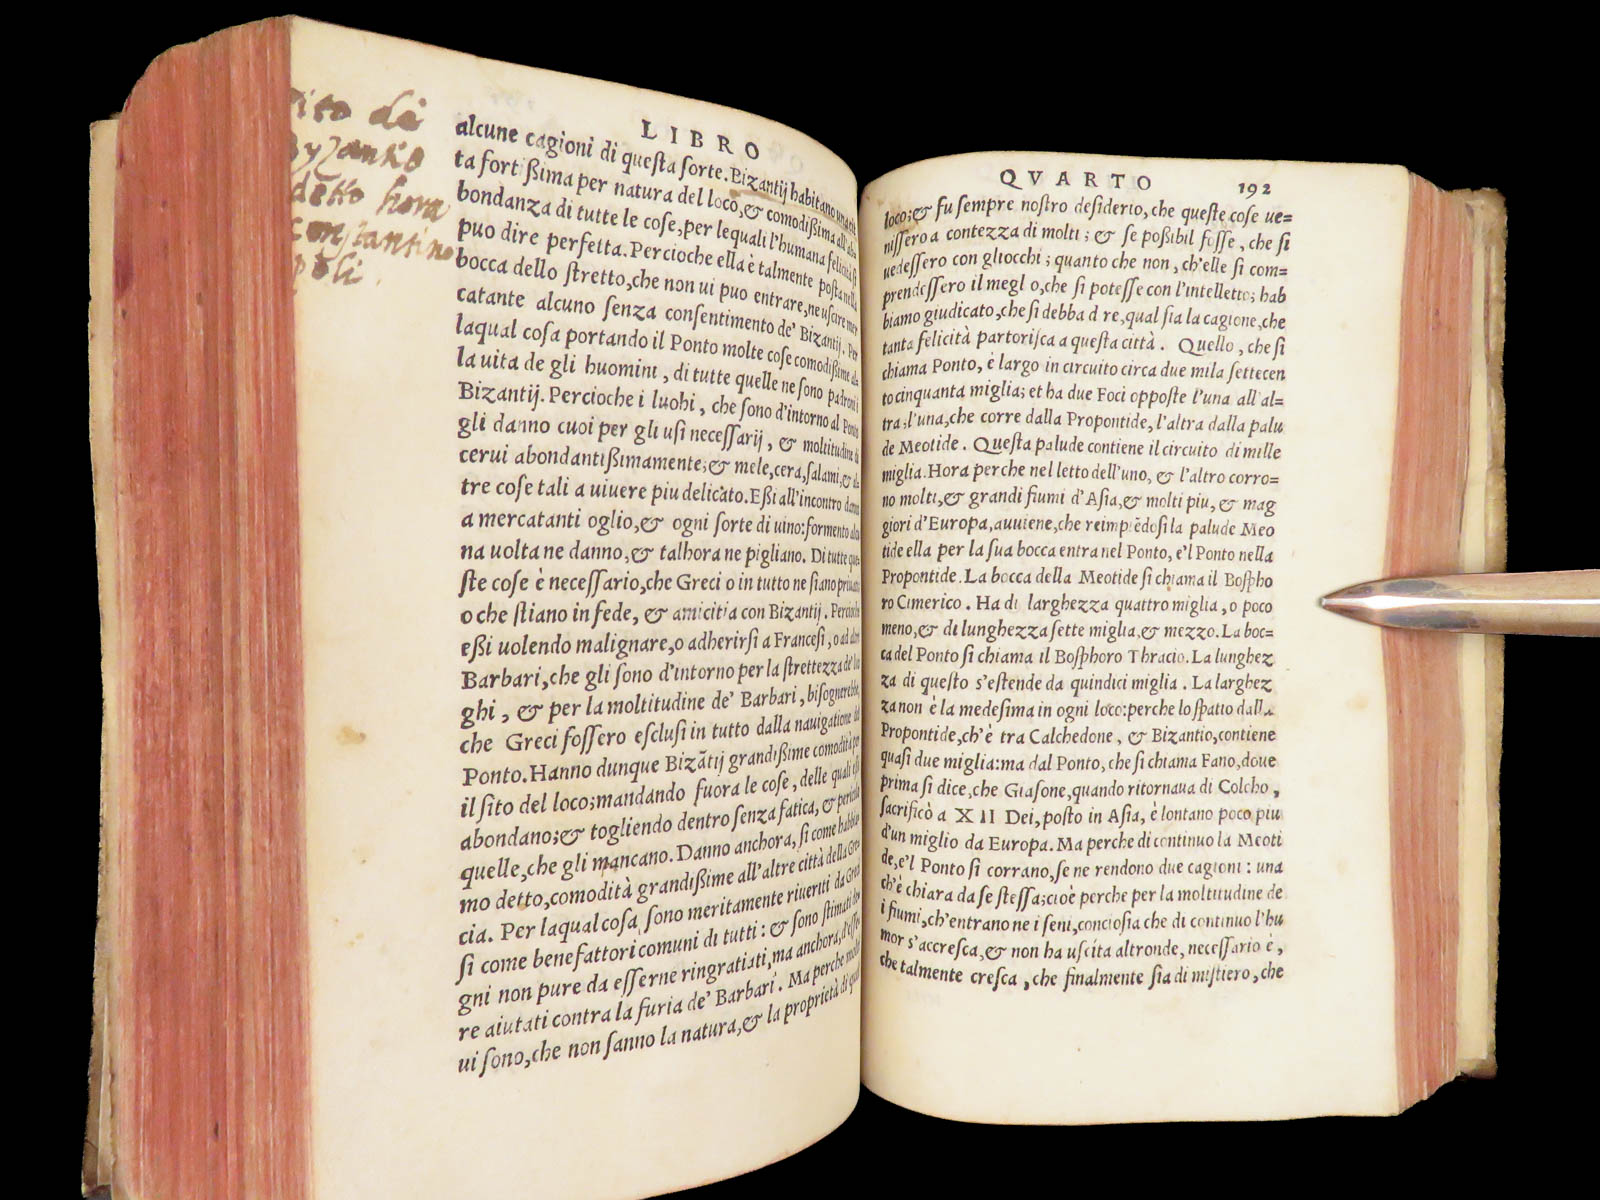 sito di
Byzantio
detto hora
Constantino
poli.
LIBRO
alcune cagioni di questa sorte. Bizantij habitano una cit
ta fortißima per natura del loco, & comodißima all'ab-
bondanza di tutte le cose, per lequali l'humana felicità si
puo dire perfetta. Percioche ella è talmente posta nella
bocca dello stretto, che non ui puo entrare, ne uscire mer
catante alcuno senza consentimento de' Bizantij. Per
laqual cosa portando il Ponto molte cose comodißime al-
la uita de gli huomini, di tutte quelle ne sono padroni i
Bizantij. Percioche i luohi, che sono d'intorno al Ponto
gli danno cuoi per gli usi necessarij, & moltitudine di
cerui abondantißimamente; & mele, cera, salami, & al-
tre cose tali a uiuere piu delicato. Eßi all'incontro danno
a mercatanti oglio, & ogni sorte di uino: formento alcu
na uolta ne danno, & talhora ne pigliano. Di tutte que-
ste cose è necessario, che Greci o in tutto ne siano priuati
o che stiano in fede, & amicitia con Bizantij. Percioche
eßi uolendo malignare, o adherirsi a Francesi, o ad altri
Barbari, che gli sono d'intorno per la strettezza de' luo
ghi, & per la moltitudine de' Barbari, bisognerebbe,
che Greci fossero esclusi in tutto dalla nauigatione del
Ponto. Hanno dunque Bizãtij grandißime comodità per
il sito del loco; mandando fuora le cose, delle quali eßi
abondano; & togliendo dentro senza fatica, & pericolo
quelle, che gli mancano. Danno anchora, si come habbia-
mo detto, comodità grandißime all'altre città della Gre-
cia. Per laqual cosa sono meritamente riueriti da Greci
si come benefattori comuni di tutti: & sono stimati de-
gni non pure da esserne ringratiati, ma anchora, d'esse-
re aiutati contra la furia de' Barbari. Ma perche molti
ui sono, che non sanno la natura, & la proprietà di quel
QVARTO 192
loco; & fu sempre nostro desiderio, che queste cose ue=
nissero a contezza di molti; & se poßibil fosse, che si
uedessero con gliocchi; quanto che non, ch'elle si com=
prendessero il megl o, che si potesse con l'intelletto; hab
biamo giudicato, che si debba d re, qual sia la cagione, che
tanta felicità partorisca a questa città. Quello, che si
chiama Ponto, è largo in circuito circa due mila settecen
to cinquanta miglia; et ha due Foci opposte l'una all'al=
tra; l'una, che corre dalla Propontide, l'altra dalla palu
de Meotide. Questa palude contiene il circuito di mille
miglia. Hora perche nel letto dell'uno, & l'altro corro=
no molti, & grandi fiumi d'Asia, & molti piu, & mag
giori d'Europa, auuiene, che reimpiẽdosi la palude Meo
tide ella per la sua bocca entra nel Ponto, e'l Ponto nella
Propontide. La bocca della Meotide si chiama il Bospho
ro Cimerico. Ha di larghezza quattro miglia, o poco
meno, & di lunghezza sette miglia, & mezzo. La boc=
ca del Ponto si chiama il Bosphoro Thracio. La lunghez
za di questo s'estende da quindici miglia. La larghez
za non è la medesima in ogni loco: perche lo spatio dalla
Propontide, ch'è tra Calchedone, & Bizantio, contiene
quasi due miglia: ma dal Ponto, che si chiama Fano, doue
prima si dice, che Giasone, quando ritornaua di Colcho,
sacrificò a XII Dei, posto in Asia, è lontano poco piu
d'un miglio da Europa. Ma perche di continuo la Meoti
de, e'l Ponto si corrano, se ne rendono due cagioni: una
ch'è chiara da se stessa; cioè perche per la moltitudine de
i fiumi, ch'entrano ne i seni, conciosia che di continuo l'hu
mor s'accresca, & non ha uscita altronde, necessario è,
che talmente cresca, che finalmente sia di mistiero, che